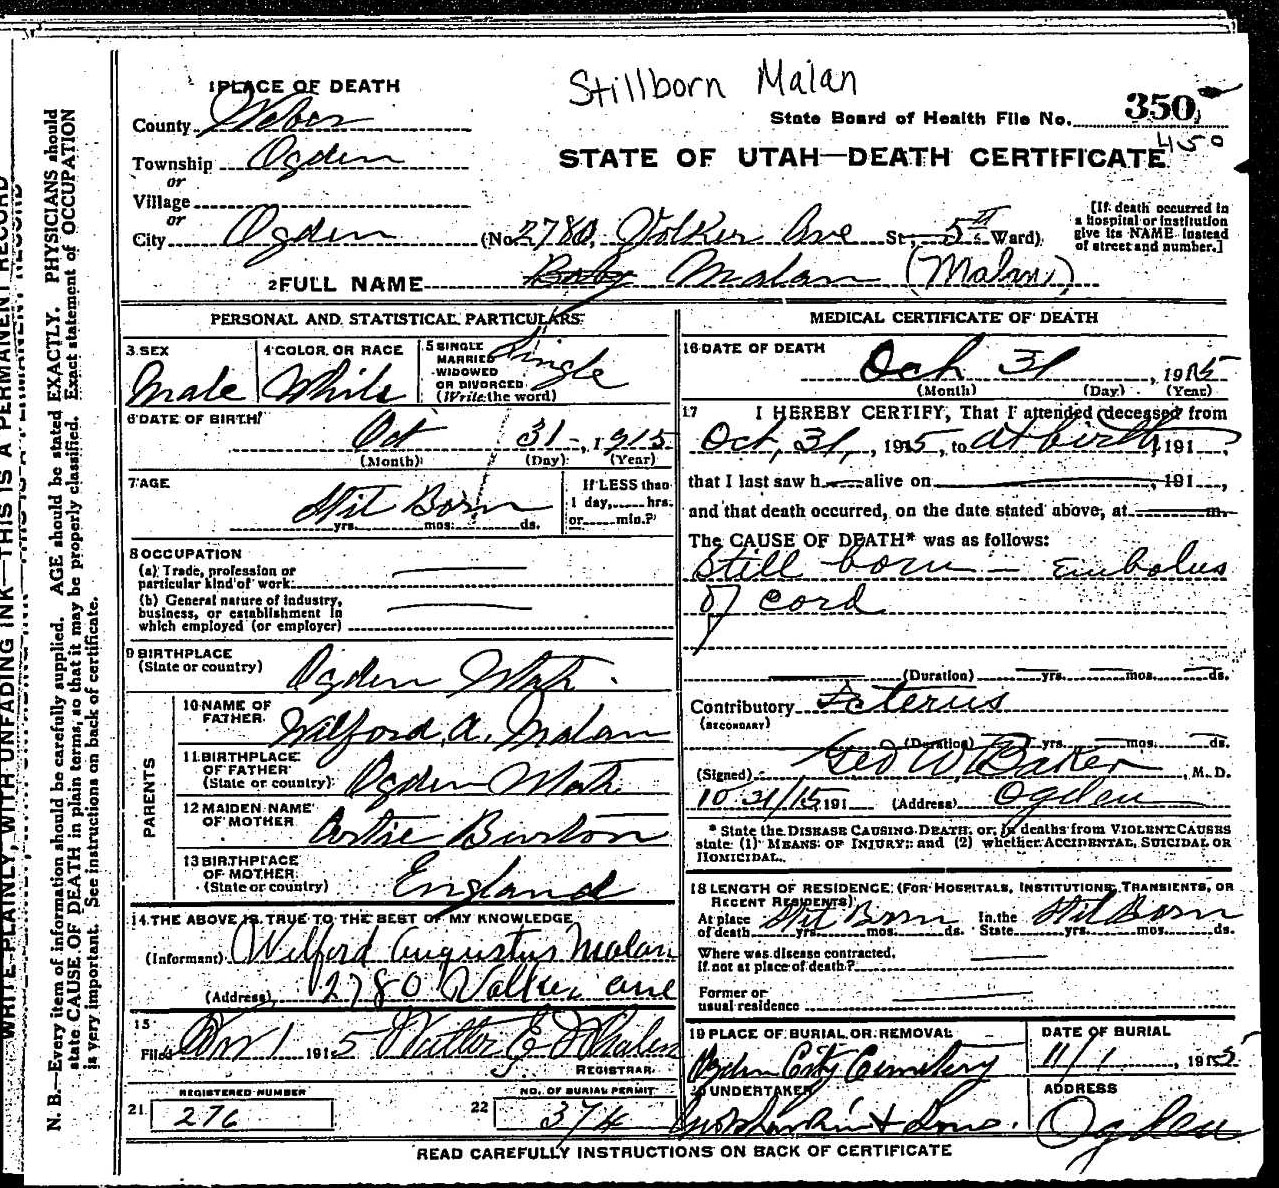 Stillborn Malan
1 PLACE OF DEATH
County Weber
State Board of Health File No. 350
450
Township Ogden
or
STATE OF UTAH—DEATH CERTIFICATE
Village
or
City Ogden (No. 2780, Volker Ave St., 5th Ward)
[If death occurred in
a hospital or institution
give its NAME instead
of street and number.]
2 FULL NAME Baby Malan (Malan)
PERSONAL AND STATISTICAL PARTICULARS
3 SEX
Male
4 COLOR OR RACE
White
5 SINGLE
MARRIED
WIDOWED
OR DIVORCED
(Write the word)
Single
6 DATE OF BIRTH
Oct 31, 1915
(Month) (Day) (Year)
7 AGE
Stil Born
yrs. mos. ds.
If LESS than
1 day, hrs.
or min.?
8 OCCUPATION
(a) Trade, profession or
particular kind of work
(b) General nature of industry,
business, or establishment in
which employed (or employer)
9 BIRTHPLACE
(State or country)
Ogden Utah.
PARENTS
10 NAME OF
FATHER
Wilford A. Malan
11 BIRTHPLACE
OF FATHER
(State or country)
Ogden Utah
12 MAIDEN NAME
OF MOTHER
Burton
13 BIRTHPLACE
OF MOTHER
(State or country)
England
14 THE ABOVE IS TRUE TO THE BEST OF MY KNOWLEDGE
(Informant) Wilford Augustus Malan
(Address) 2780 ave
15
Filed Nov 1 1915 Walter E Whalen
REGISTRAR
REGISTERED NUMBER
21 276
NO. OF BURIAL PERMIT
22 374
MEDICAL CERTIFICATE OF DEATH
16 DATE OF DEATH
Och 31, 1915
(Month) (Day) (Year)
17 I HEREBY CERTIFY, That I attended deceased from
Och, 31, 1915, to at birth, 191
that I last saw h alive on , 191 ,
and that death occurred, on the date stated above, at m.
The CAUSE OF DEATH* was as follows:
Still born — Embolus
of cord
(Duration) yrs. mos. ds.
Contributory Icterus
(SECONDARY)
(Duration) yrs. mos. ds.
(Signed) Geo W. Baker, M. D.
10 31/15, 191 (Address) Ogden
* State the DISEASE CAUSING DEATH, or, in deaths from VIOLENT CAUSES
state (1) MEANS OF INJURY; and (2) whether ACCIDENTAL, SUICIDAL OR
HOMICIDAL.
18 LENGTH OF RESIDENCE (FOR HOSPITALS, INSTITUTIONS, TRANSIENTS, OR
RECENT RESIDENTS)
At place Stil Born In the Stil Born
of death yrs. mos. ds. State yrs. mos. ds.
Where was disease contracted,
If not at place of death?
Former or
usual residence
19 PLACE OF BURIAL OR REMOVAL
Ogden City Cemetery
DATE OF BURIAL
11/1, 1915
20 UNDERTAKER
Larkin & Sons.
ADDRESS
Ogden
READ CAREFULLY INSTRUCTIONS ON BACK OF CERTIFICATE
WRITE PLAINLY, WITH UNFADING INK—THIS IS A PERMANENT RECORD
N. B.—Every item of information should be carefully supplied. AGE should be stated EXACTLY. PHYSICIANS should
state CAUSE OF DEATH in plain terms, so that it may be properly classified. Exact statement of OCCUPATION
is very important. See instructions on back of certificate.